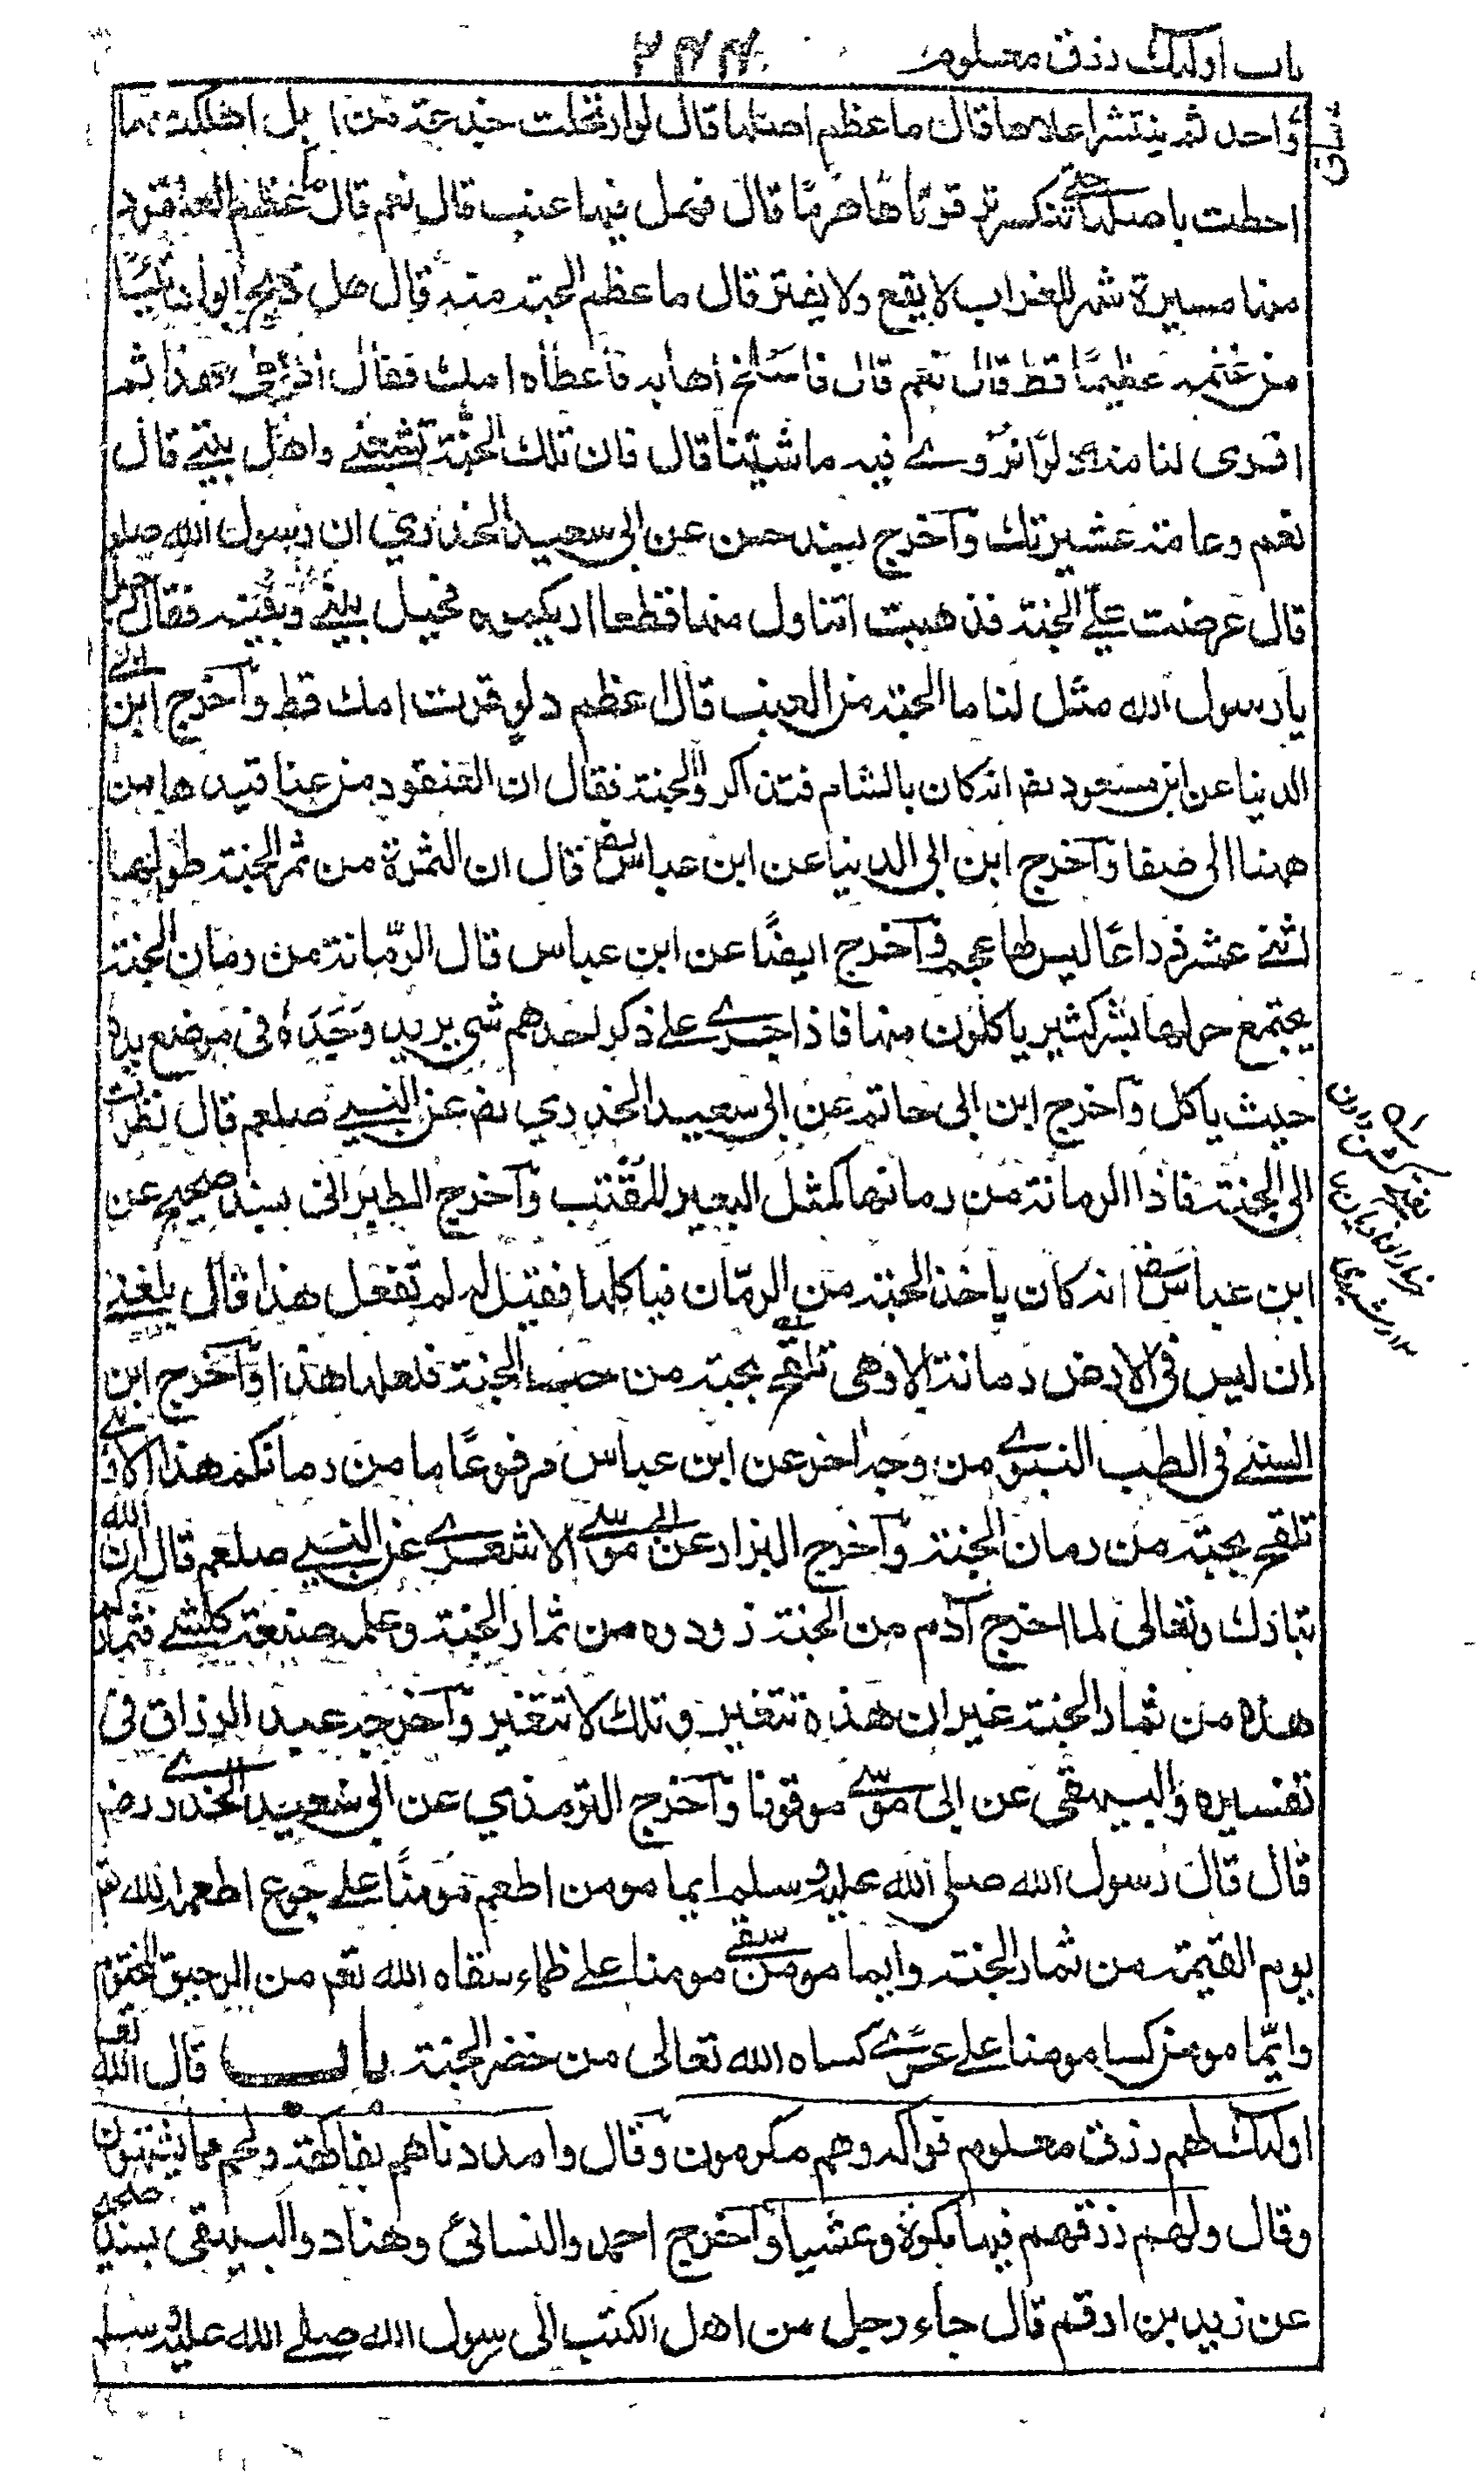 باب اولئك رزق معلوم ٢٤٤
ساق
واحد ثم ينتشر اعلاها قال ما عظم اصلها قال لو ارتحلت جذعة من ابل اهلك ما
احطت باصلها حتى تنكسر ترقوتاها هرما قال فهل فيها عنب قال نعم قال ما عظم العنقود
منها مسيرة شهر للغراب لا يقع ولا يفتر قال ما عظم الحبة منه قال هل ذبح ابوك تيسا
من غنمه عظيما قط قال نعم قال فاسلخ اهابه فاعطاه امك فقال ادبغي هذا ثم
افرى لنا منه دلوا نروے فيه ماشيتنا قال فان تلك الحبة تشبعنے واهل بيتے قال
نعم وعامة عشيرتك وآخرج بسند حسن عن ابى سعيد الخدري ان رسول الله صلعم
قال عرضت علےّ الجنة فذهبت اتناول منها قطفا اريكموه فحيل بينے وبينه فقال رجل
يا رسول الله مثل لنا ما الحبة من العنب قال اعظم دلو فرت امك قط وآخرج ابن ابے
الدنيا عن ابن مسعود رضـ انه كان بالشام فتذاكروا الجنة فقال ان العنقود من عناقيدها من
ههنا الى صنعا وآخرج ابن ابى الدنيا عن ابن عباس رضـ قال ان الثمرة من ثمر الجنة طولها
اثنے عشر ذراعا ليس لها عجم وآخرج ايضا عن ابن عباس قال الرّمانة من رمان الجنة
يجتمع حولها بشر كثير ياكلون منها فاذا جرے علے ذكر احدهم شى يريد وجده فى موضع يده
حيث ياكل وآخرج ابن ابى حاتم عن ابى سعيد الخدري رضـ عن النبے صلعم قال نظرت
الى الجنة فاذا الرمانة من رمانها كمثل البعير المقتب وآخرج الطبرانى بسند صحيح عن
ابن عباس رضـ انه كان ياخذ الحبة من الرمّان فياكلها فقيل له لم تفعل هذا قال بلغنے
ان ليس فى الارض رمانة الا وهى تلقح بحبة من حب الجنة فلعلها هذا وآخرج ابن
السنے فى الطب النبوے من وجه اخر عن ابن عباس مرفوعا ما من رمانكم هذا الا وهے
تلقح بحبة من رمان الجنة وآخرج البزار عن ابى موسے الاشعرے عن النبے صلعم قال ان الله
تبارك وتعالى لما اخرج آدم من الجنة زوده من ثمار الجنة وعلمه صنعة كلشے فثماركم
هذه من ثمار الجنة غير ان هذه تتغير وتلك لا تتغير وآخرجه عبد الرزاق فى
تفسيره والبيهقى عن ابى موسے موقوفا وآخرج الترمذي عن ابى سعيد الخدرے رضـ
قال قال رسول الله صلى الله عليه وسلم ايما مومن اطعم مومنا علے جوع اطعمه الله تعـ
يوم القيمة من ثمار الجنة وايما مومن سقے مومنا علے ظماء سقاه الله تعـ من الرحيق المختوم
وايّما مومن كسا مومنا علے عرے كساه الله تعالى من خضر الجنة باب قال الله تعـ
اولئك لهم رزق معلوم فواكه وهم مكرمون وقال وامددناهم بفاكهة ولحم مما يشتهون
وقال ولهم رزقهم فيها بكرة وعشيا وآخرج احمد والنسائى وهناد والبيهقى بسند صحيح
عن زيد بن ارقم قال جاء رجل من اهل الكتب الى رسول الله صلے الله عليه وسلم